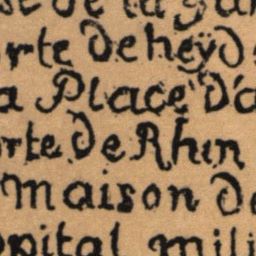 se de la gar
rte de heÿd
a Place d'a
rte de Rhin
Maison de
opital mili